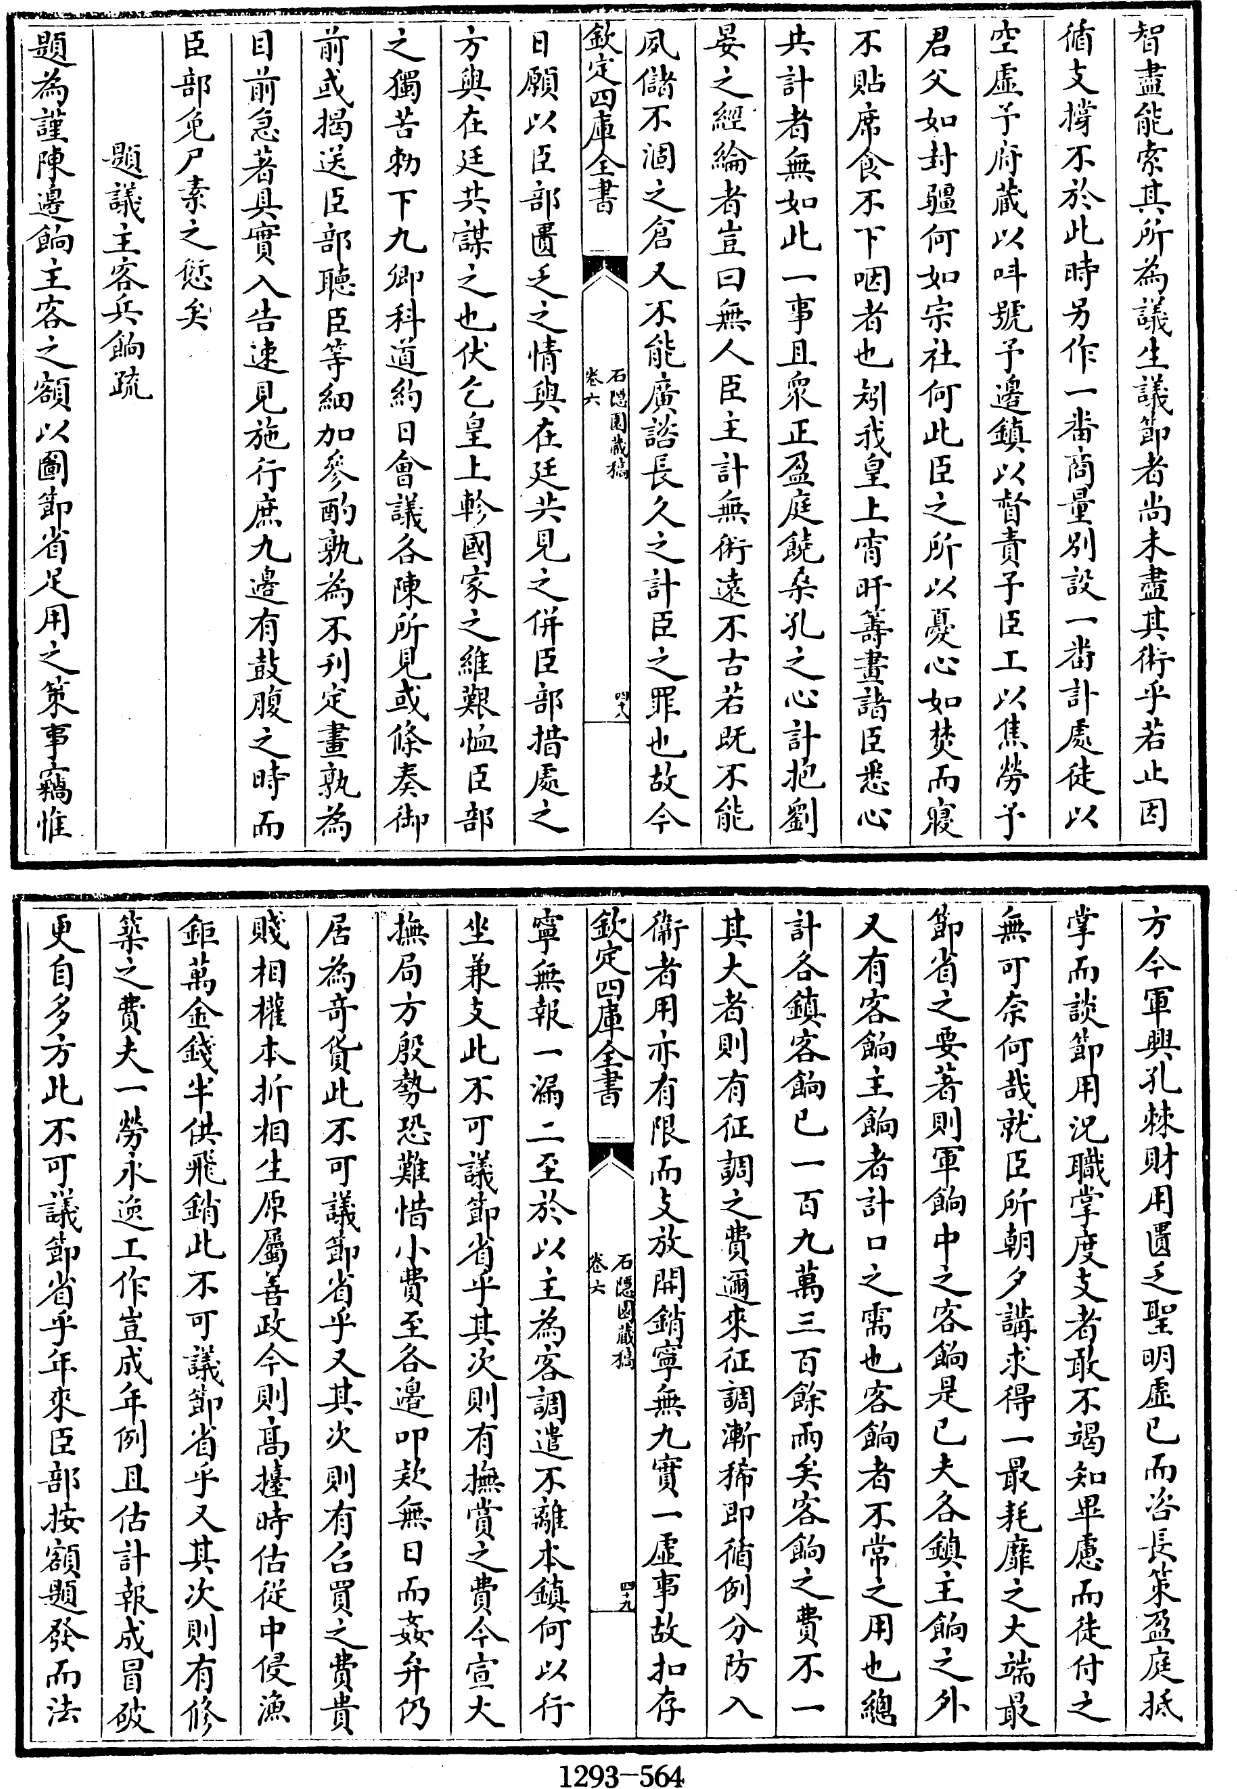 智盡能索其所為議生議節者尚未盡其術乎若止因
循支撐不於此時另作一番商量別設一番計處徒以
空虛予府藏以呌號予邊鎮以督責予臣工以焦勞予
君父如封疆何如宗社何此臣之所以憂心如焚而寢
不貼席食不下咽者也矧我皇上宵旰籌畫諸臣悉心
共計者無如此一事且衆正盈庭饒桑孔之心計抱劉
晏之經綸者豈曰無人臣主計無術遠不古若既不能
夙儲不涸之倉又不能廣諮長久之計臣之罪也故今
欽定四庫全書
石隱園藏稿
卷六
四十八
日願以臣部匱乏之情與在廷共見之併臣部措處之
方與在廷共謀之也伏乞皇上軫國家之維艱恤臣部
之獨苦勅下九卿科道約日會議各陳所見或條奏御
前或揭送臣部聽臣等細加參酌孰為不刋定畫孰為
目前急著具實入告速見施行庶九邊有鼓腹之時而
臣部免尸素之愆矣
題議主客兵餉疏
題為謹陳邊餉主客之額以圖節省足用之策事竊惟
方今軍興孔棘財用匱乏聖明虛已而咨長策盈庭抵
掌而談節用況職掌度支者敢不竭知畢慮而徒付之
無可奈何哉就臣所朝夕講求得一最耗靡之大端最
節省之要著則軍餉中之客餉是已夫各鎮主餉之外
又有客餉主餉者計口之需也客餉者不常之用也總
計各鎮客餉已一百九萬三百餘兩矣客餉之費不一
其大者則有征調之費邇來征調漸稀即循例分防入
衞者用亦有限而支放開銷寧無九實一虛事故扣存
欽定四庫全書
石隱園藏稿
卷六
四十九
寧無報一漏二至於以主為客調遣不離本鎮何以行
坐兼支此不可議節省乎其次則有撫賞之費今宣大
撫局方殷勢恐難惜小費至各邊叩欵無日而姦弁仍
居為竒貨此不可議節省乎又其次則有召買之費貴
賤相權本折相生原屬善政今則髙擡時估從中侵漁
鉅萬金錢半供飛銷此不可議節省乎又其次則有修
築之費夫一勞永逸工作豈成年例且估計報成冒破
更自多方此不可議節省乎年來臣部按額題發而法
1293-564